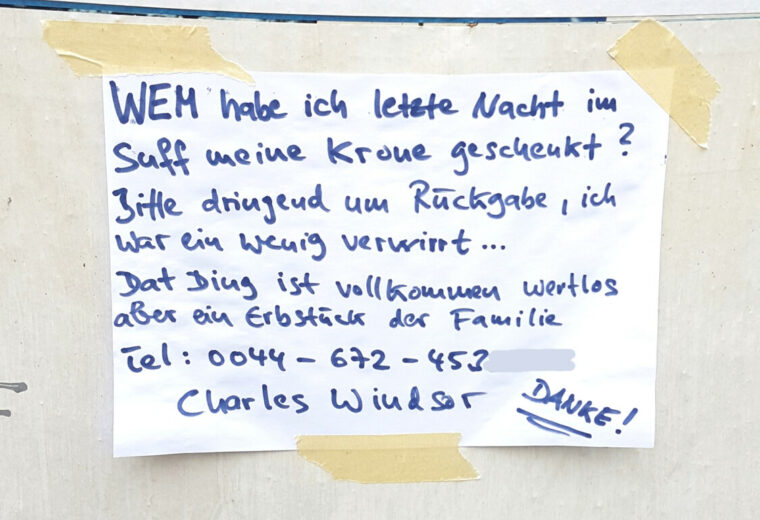 WEM habe ich letzte Nacht im
Suff meine Krone geschenkt?
Bitte dringend um Rückgabe, ich
war ein wenig verwirrt...
Dat Ding ist vollkommen wertlos
aber ein Erbstück der Familie
Tel: 0044 - 672 - 453
Charles Windsor
DANKE!